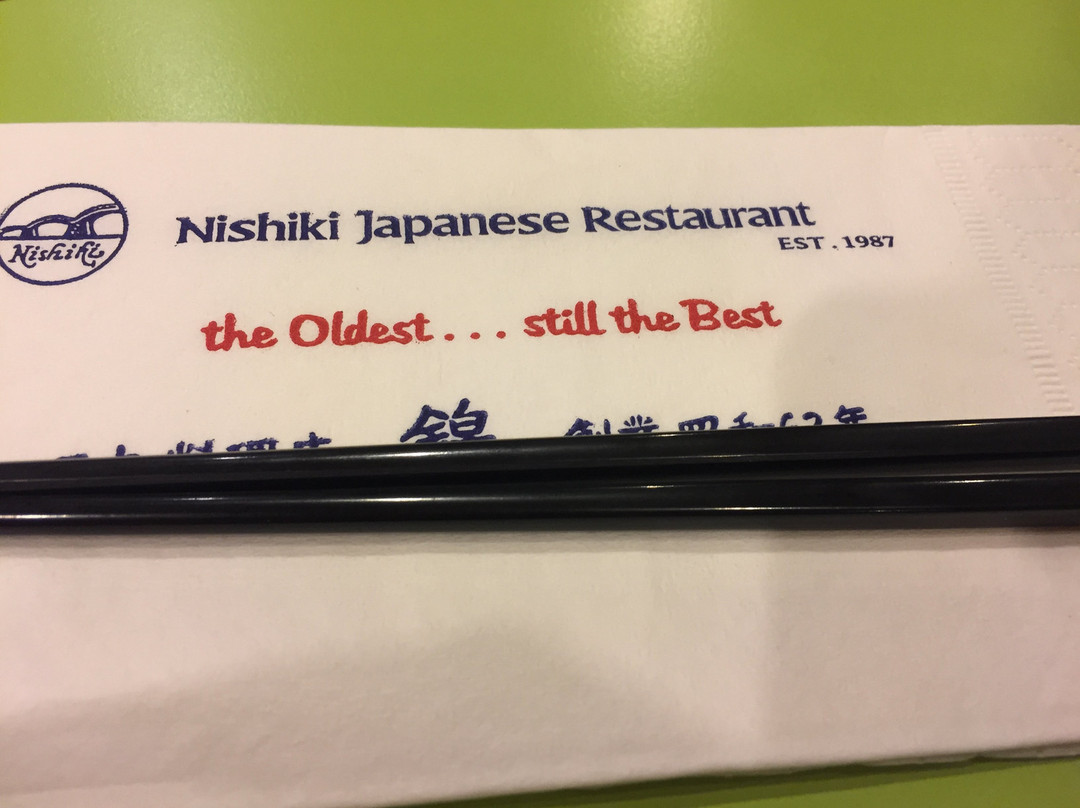 Nishiki
Nishiki Japanese Restaurant
EST . 1987
the Oldest . . . still the Best
錦